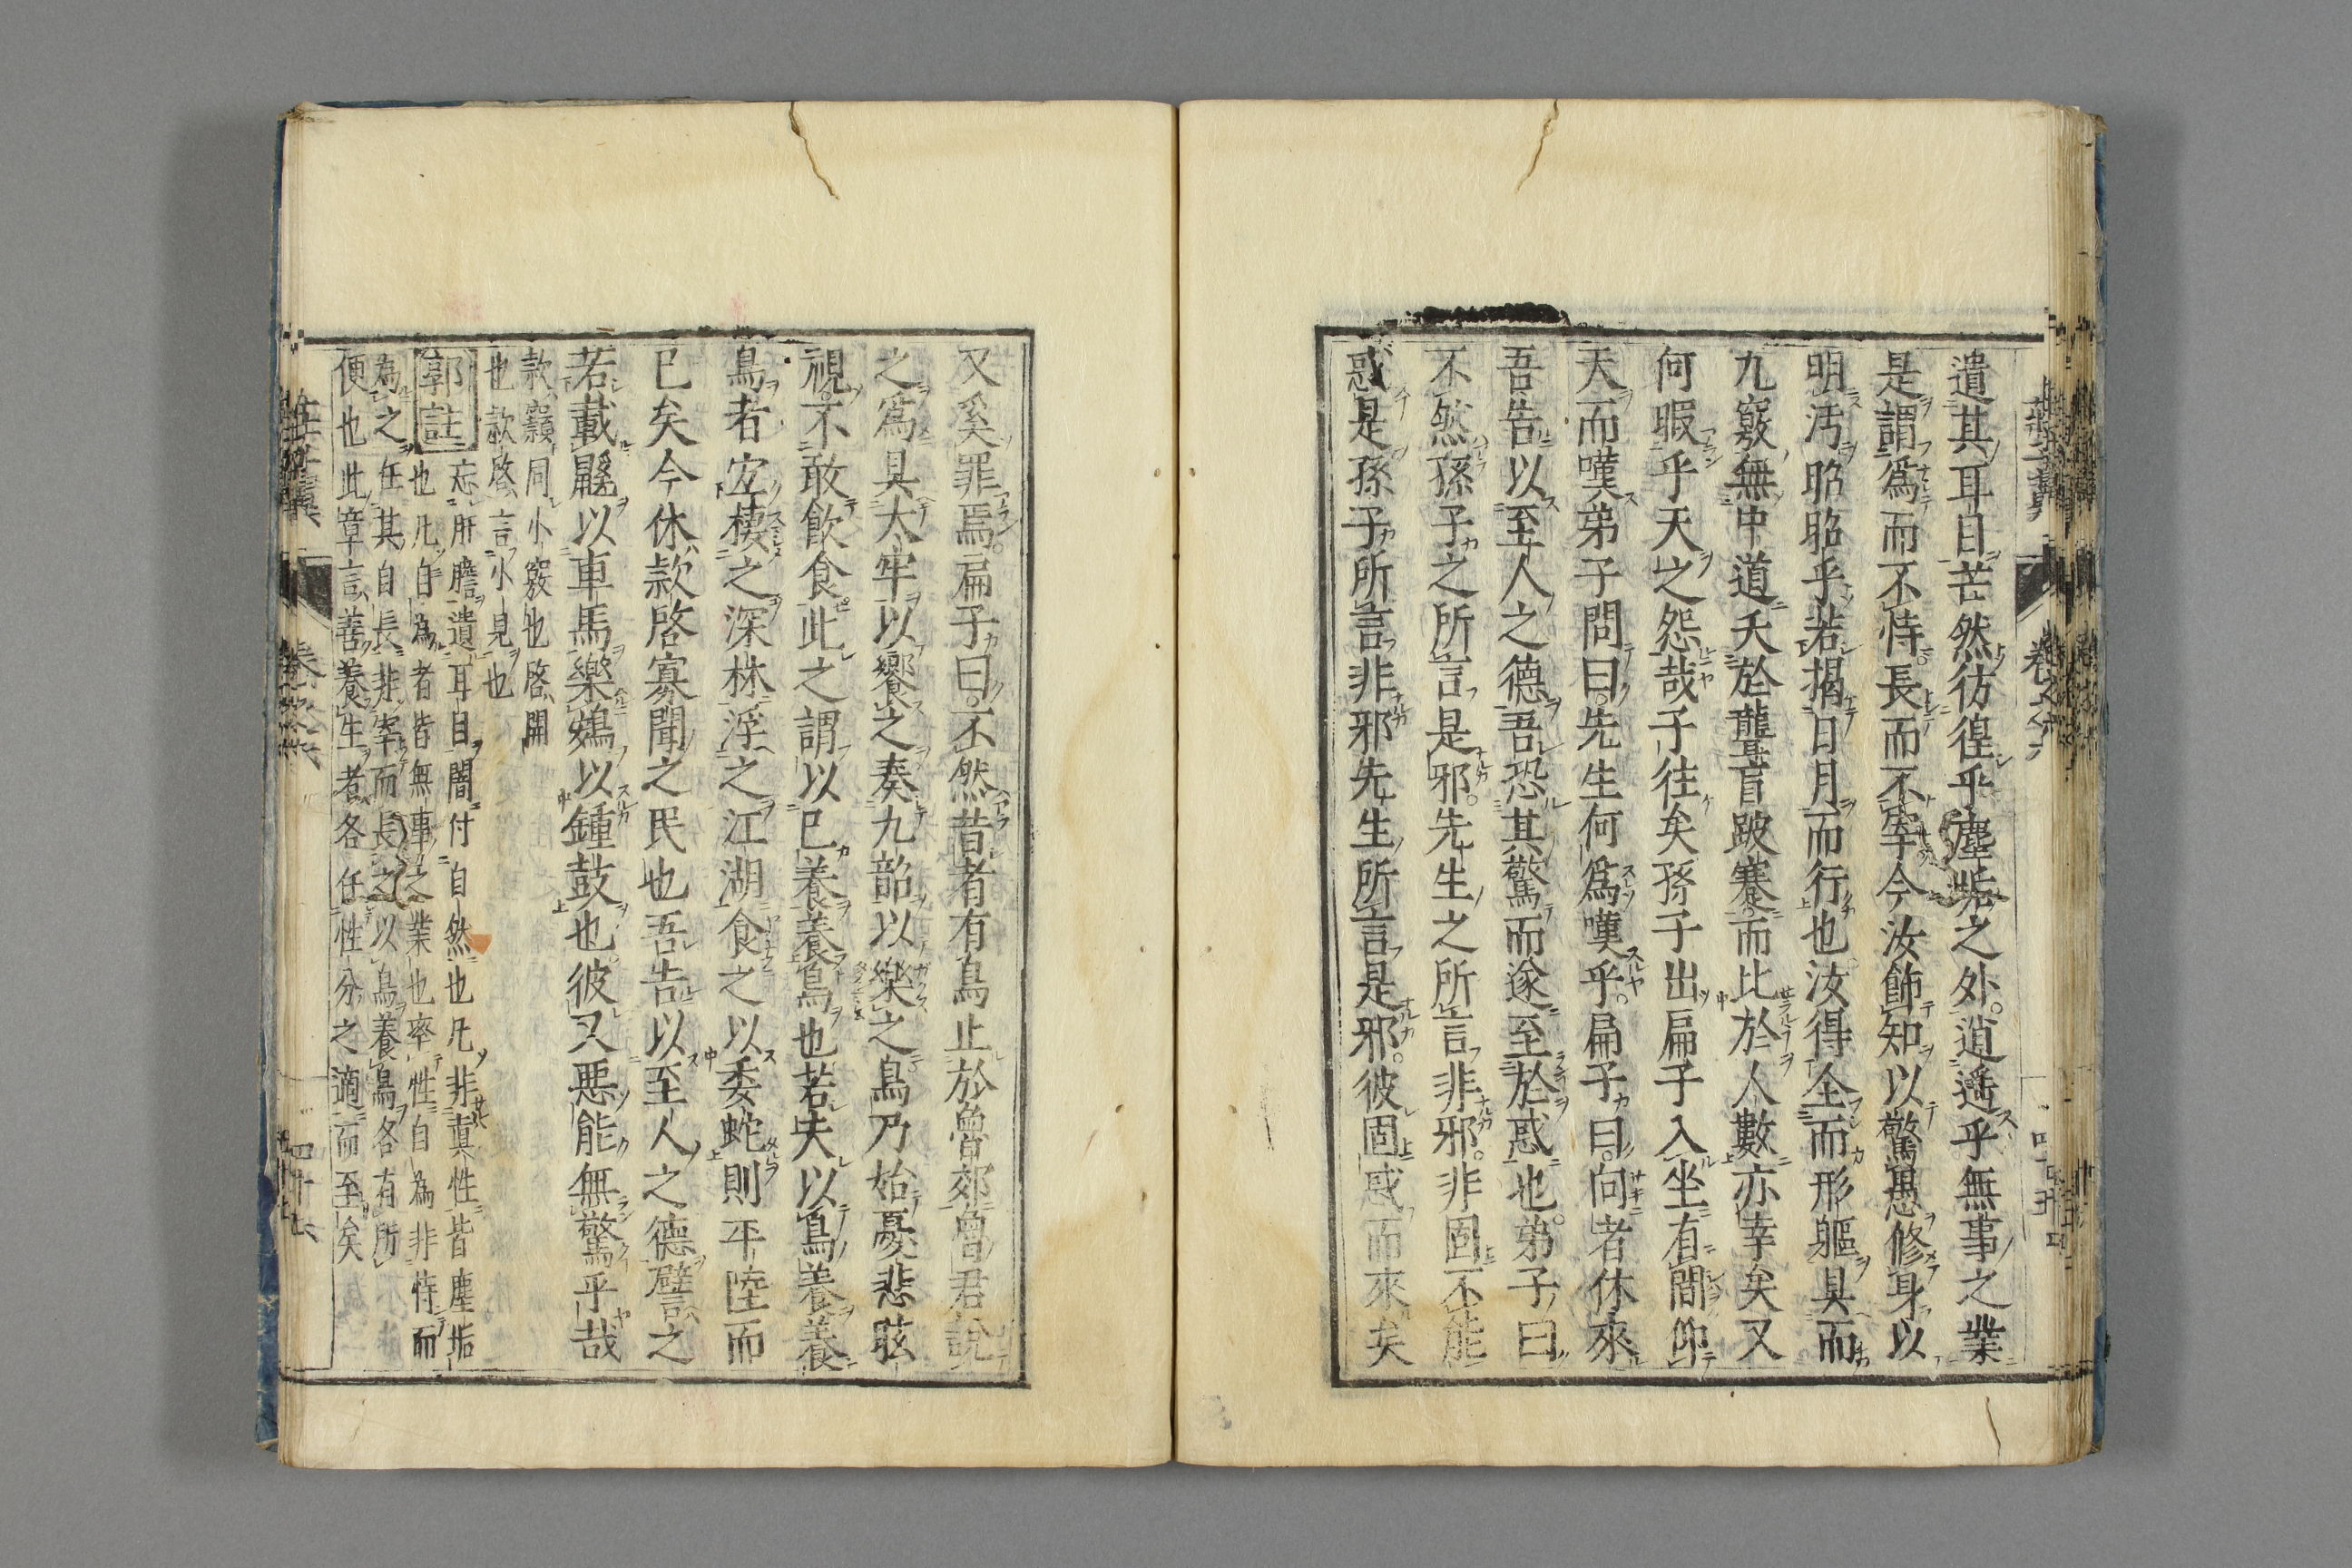 遺其耳目芒然彷徨乎塵垢之外逍遥乎無事之業
是謂爲而不恃長而不宰今汝飾知以驚愚修身以
明汚昭昭乎若揭日月而行也汝得全而形軀具而
九竅無中道夭於聾盲跛蹇而比於人數亦幸矣又
何暇乎天之怨哉子往矣孫子出扁子入坐有間仰
天而嘆弟子問曰先生何爲嘆乎扁子曰向者休來
吾告以至人之德吾恐其驚而遂至於惑也弟子曰
不然孫子之所言是邪先生之所言非邪非固不能
惑是孫子所言非邪先生所言是邪彼固惑而來矣
又奚罪焉扁子曰不然昔者有鳥止於魯郊魯君說
之爲具太牢以饗之奏九韶以樂之鳥乃始憂悲眩
視不敢飲食此之謂以已養養鳥也若夫以鳥養養
鳥者宜棲之深林浮之江湖食之以委蛇則平陸而
已矣今休款啓寡聞之民也吾告以至人之德譬之
若載鼷以車馬樂鴳以鍾鼓也彼又惡能無驚乎哉
款竅同小竅也啓開
也款啓言小見也
郭註
忘肝膽遺耳目闇付自然也凡非真性皆塵垢
也凡自為者皆無事之業也率性自為非恃而
為之任其自長非宰而長之以鳥養鳥各有所
便也此章言善養生者各任性分之適而至矣